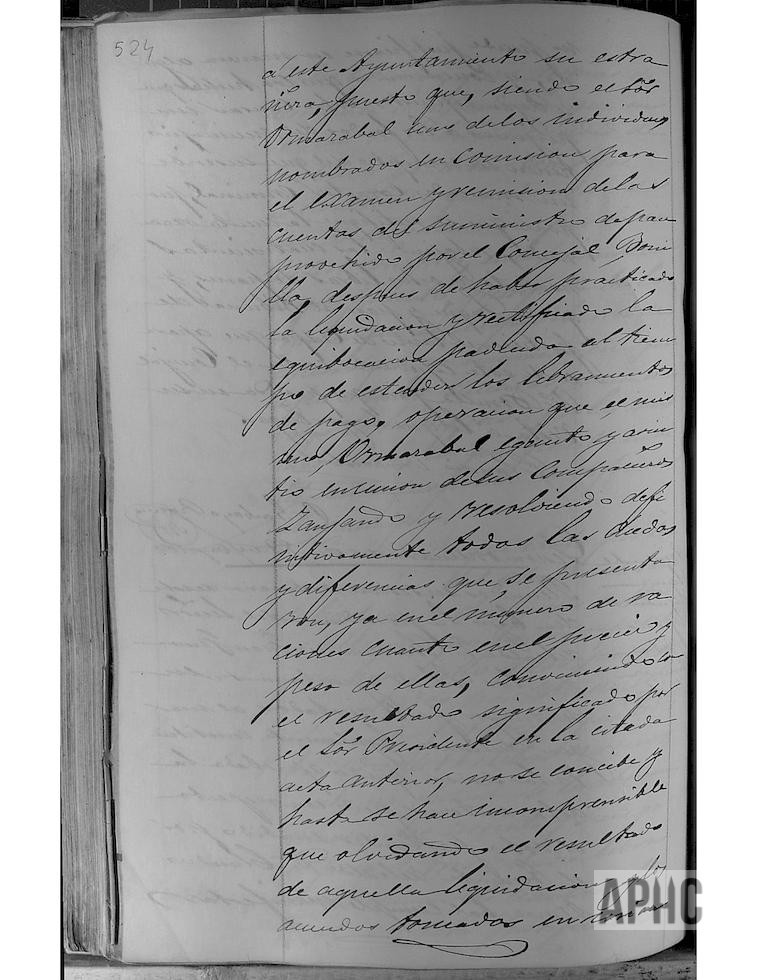 524
a este Ayuntamiento su estra
ñera, puesto que, siendo el Sôr
Ormarabal uno de los individuos
nombrados en Comision para
el examen y revision de las
cuentas del suministro de pan
provehido por el Concejal Boni
lla, despues de haber practicado
la liquidacion y rectificado la
equibocacion padecida al tiem
po de estender los libramientos
de pago, operacion que el mis
mo Ormarabal egecuto y asin
tio en union de sus Compañeros
Zanjando y resolviendo defi
nitivamente todas las dudas
y diferencias que se presenta
ron, ya en el número de ra
ciones cuanto en el precio y
peso de ellas, conviniendo co
el resultado significado por
el Sôr Presidente en la citada
acta anterior, no se concibe y
hasta se hace incomprensible
que olvidando el resultado
de aquella liquidacion y los
acuerdos tomados en
APHC